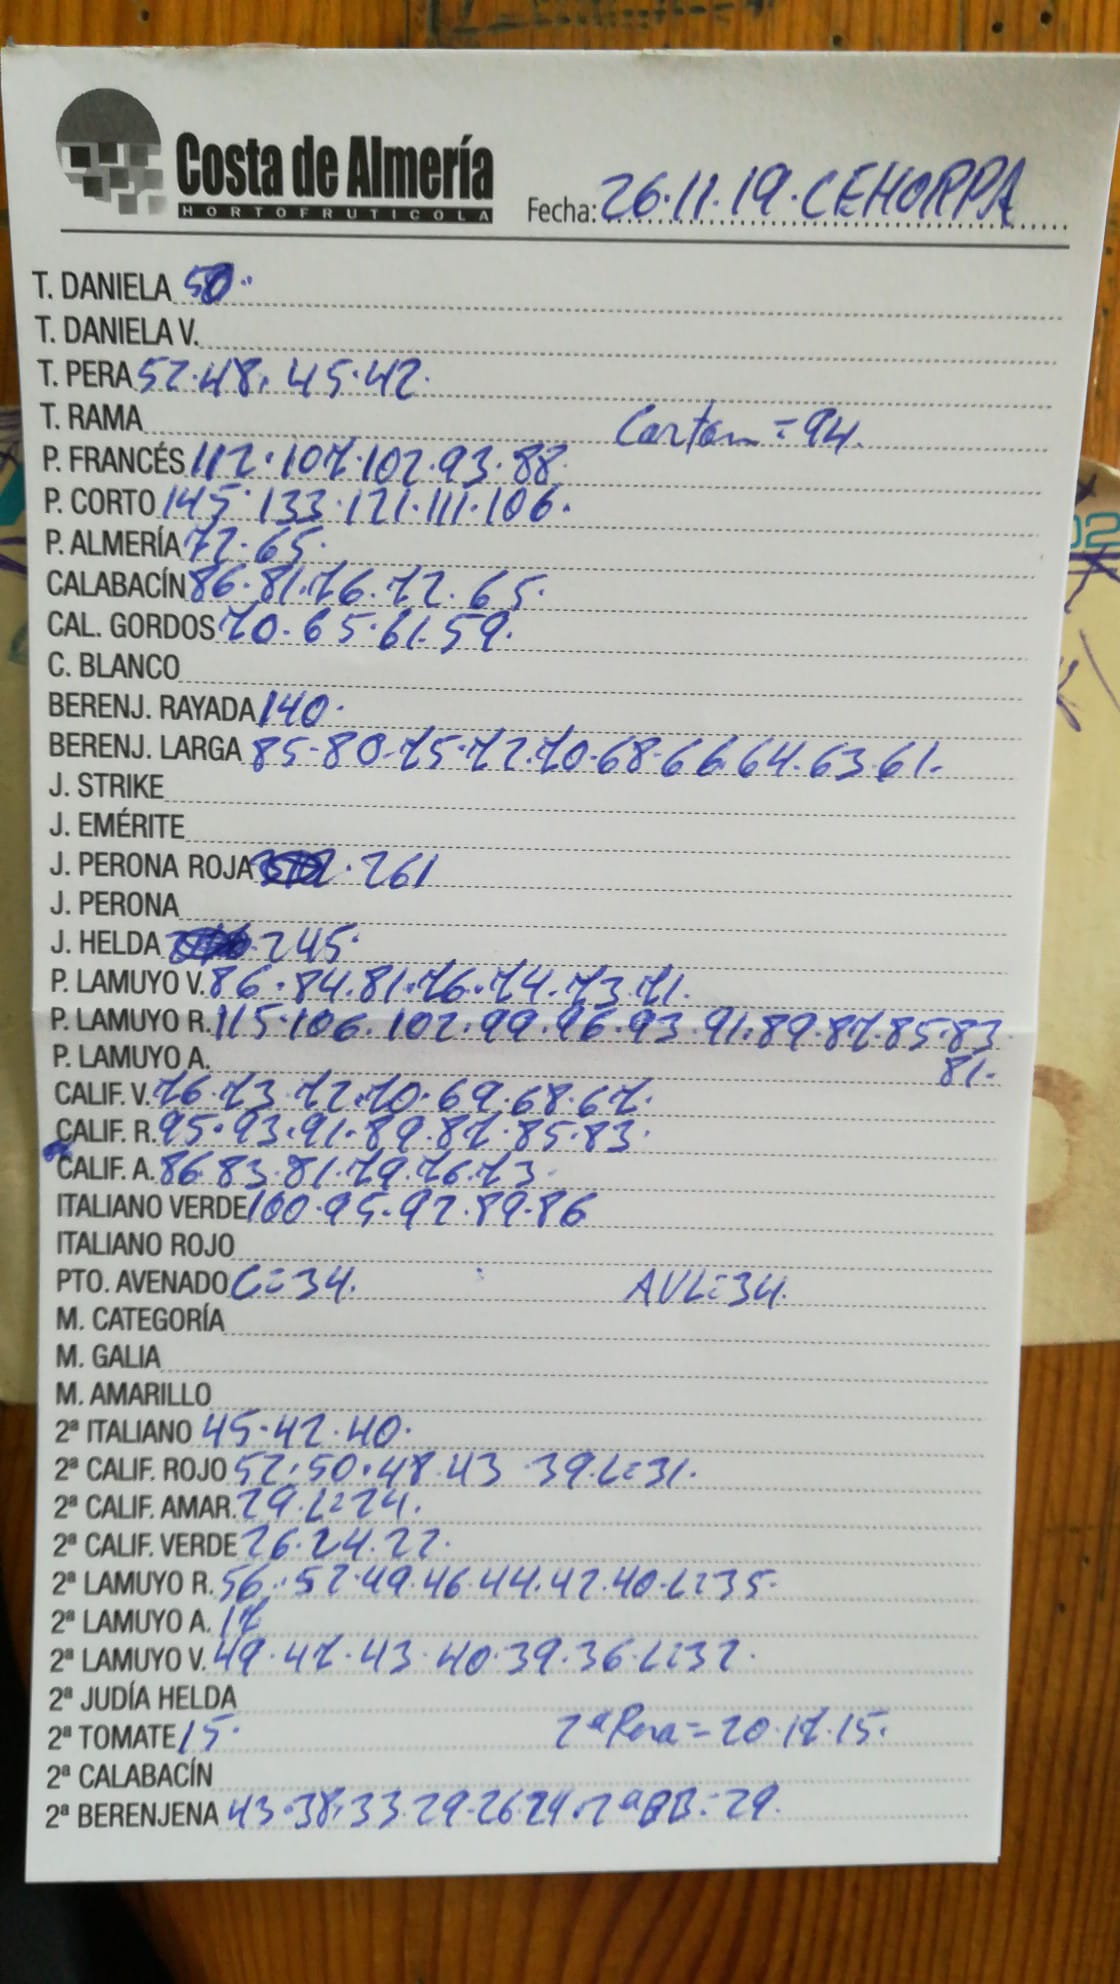 Costa de Almería
HORTOFRUTICOLA
Fecha: 26.11.19.CEHORPA
T. DANIELA 50.
T. DANIELA V.
T. PERA 52.48. 45.42.
T. RAMA
Carton = 94.
P. FRANCÉS 112.107.102.93.88.
P. CORTO 145.133.121.111.106.
P. ALMERÍA 72.65.
CALABACÍN 86.81.76.72.65.
CAL. GORDOS 70.65.61.59.
C. BLANCO
BERENJ. RAYADA 140.
BERENJ. LARGA 85-80-75.72.70.68.66.64.63.61.
J. STRIKE
J. EMÉRITE
J. PERONA ROJA . 261
J. PERONA
J. HELDA . 245.
P. LAMUYO V. 86.84.81.76.74.73.71.
P. LAMUYO R. 115.106.102.99.96.93.91.89.87.85.83
81.
P. LAMUYO A.
CALIF. V. 76.73.72.70.69.68.67.
CALIF. R. 95.93.91.89.87.85.83.
CALIF. A. 86.83.81.79.76.73.
ITALIANO VERDE 100.95.92.89.86
ITALIANO ROJO
PTO. AVENADO C=34. AVL=34.
M. CATEGORÍA
M. GALIA
M. AMARILLO
2ª ITALIANO 45.42.40.
2ª CALIF. ROJO 52.50.48.43.39.L=31.
2ª CALIF. AMAR. 29.L=24.
2ª CALIF. VERDE 26.24.22.
2ª LAMUYO R. 56.52.49.46.44.42.40.L=35.
2ª LAMUYO A. 17
2ª LAMUYO V. 49.47.43.40.39.36.L=32.
2ª JUDÍA HELDA
2ª TOMATE 15. 2ª Pera = 20.17.15.
2ª CALABACÍN
2ª BERENJENA 43.38.33.29.26.24.2ªBB=29.